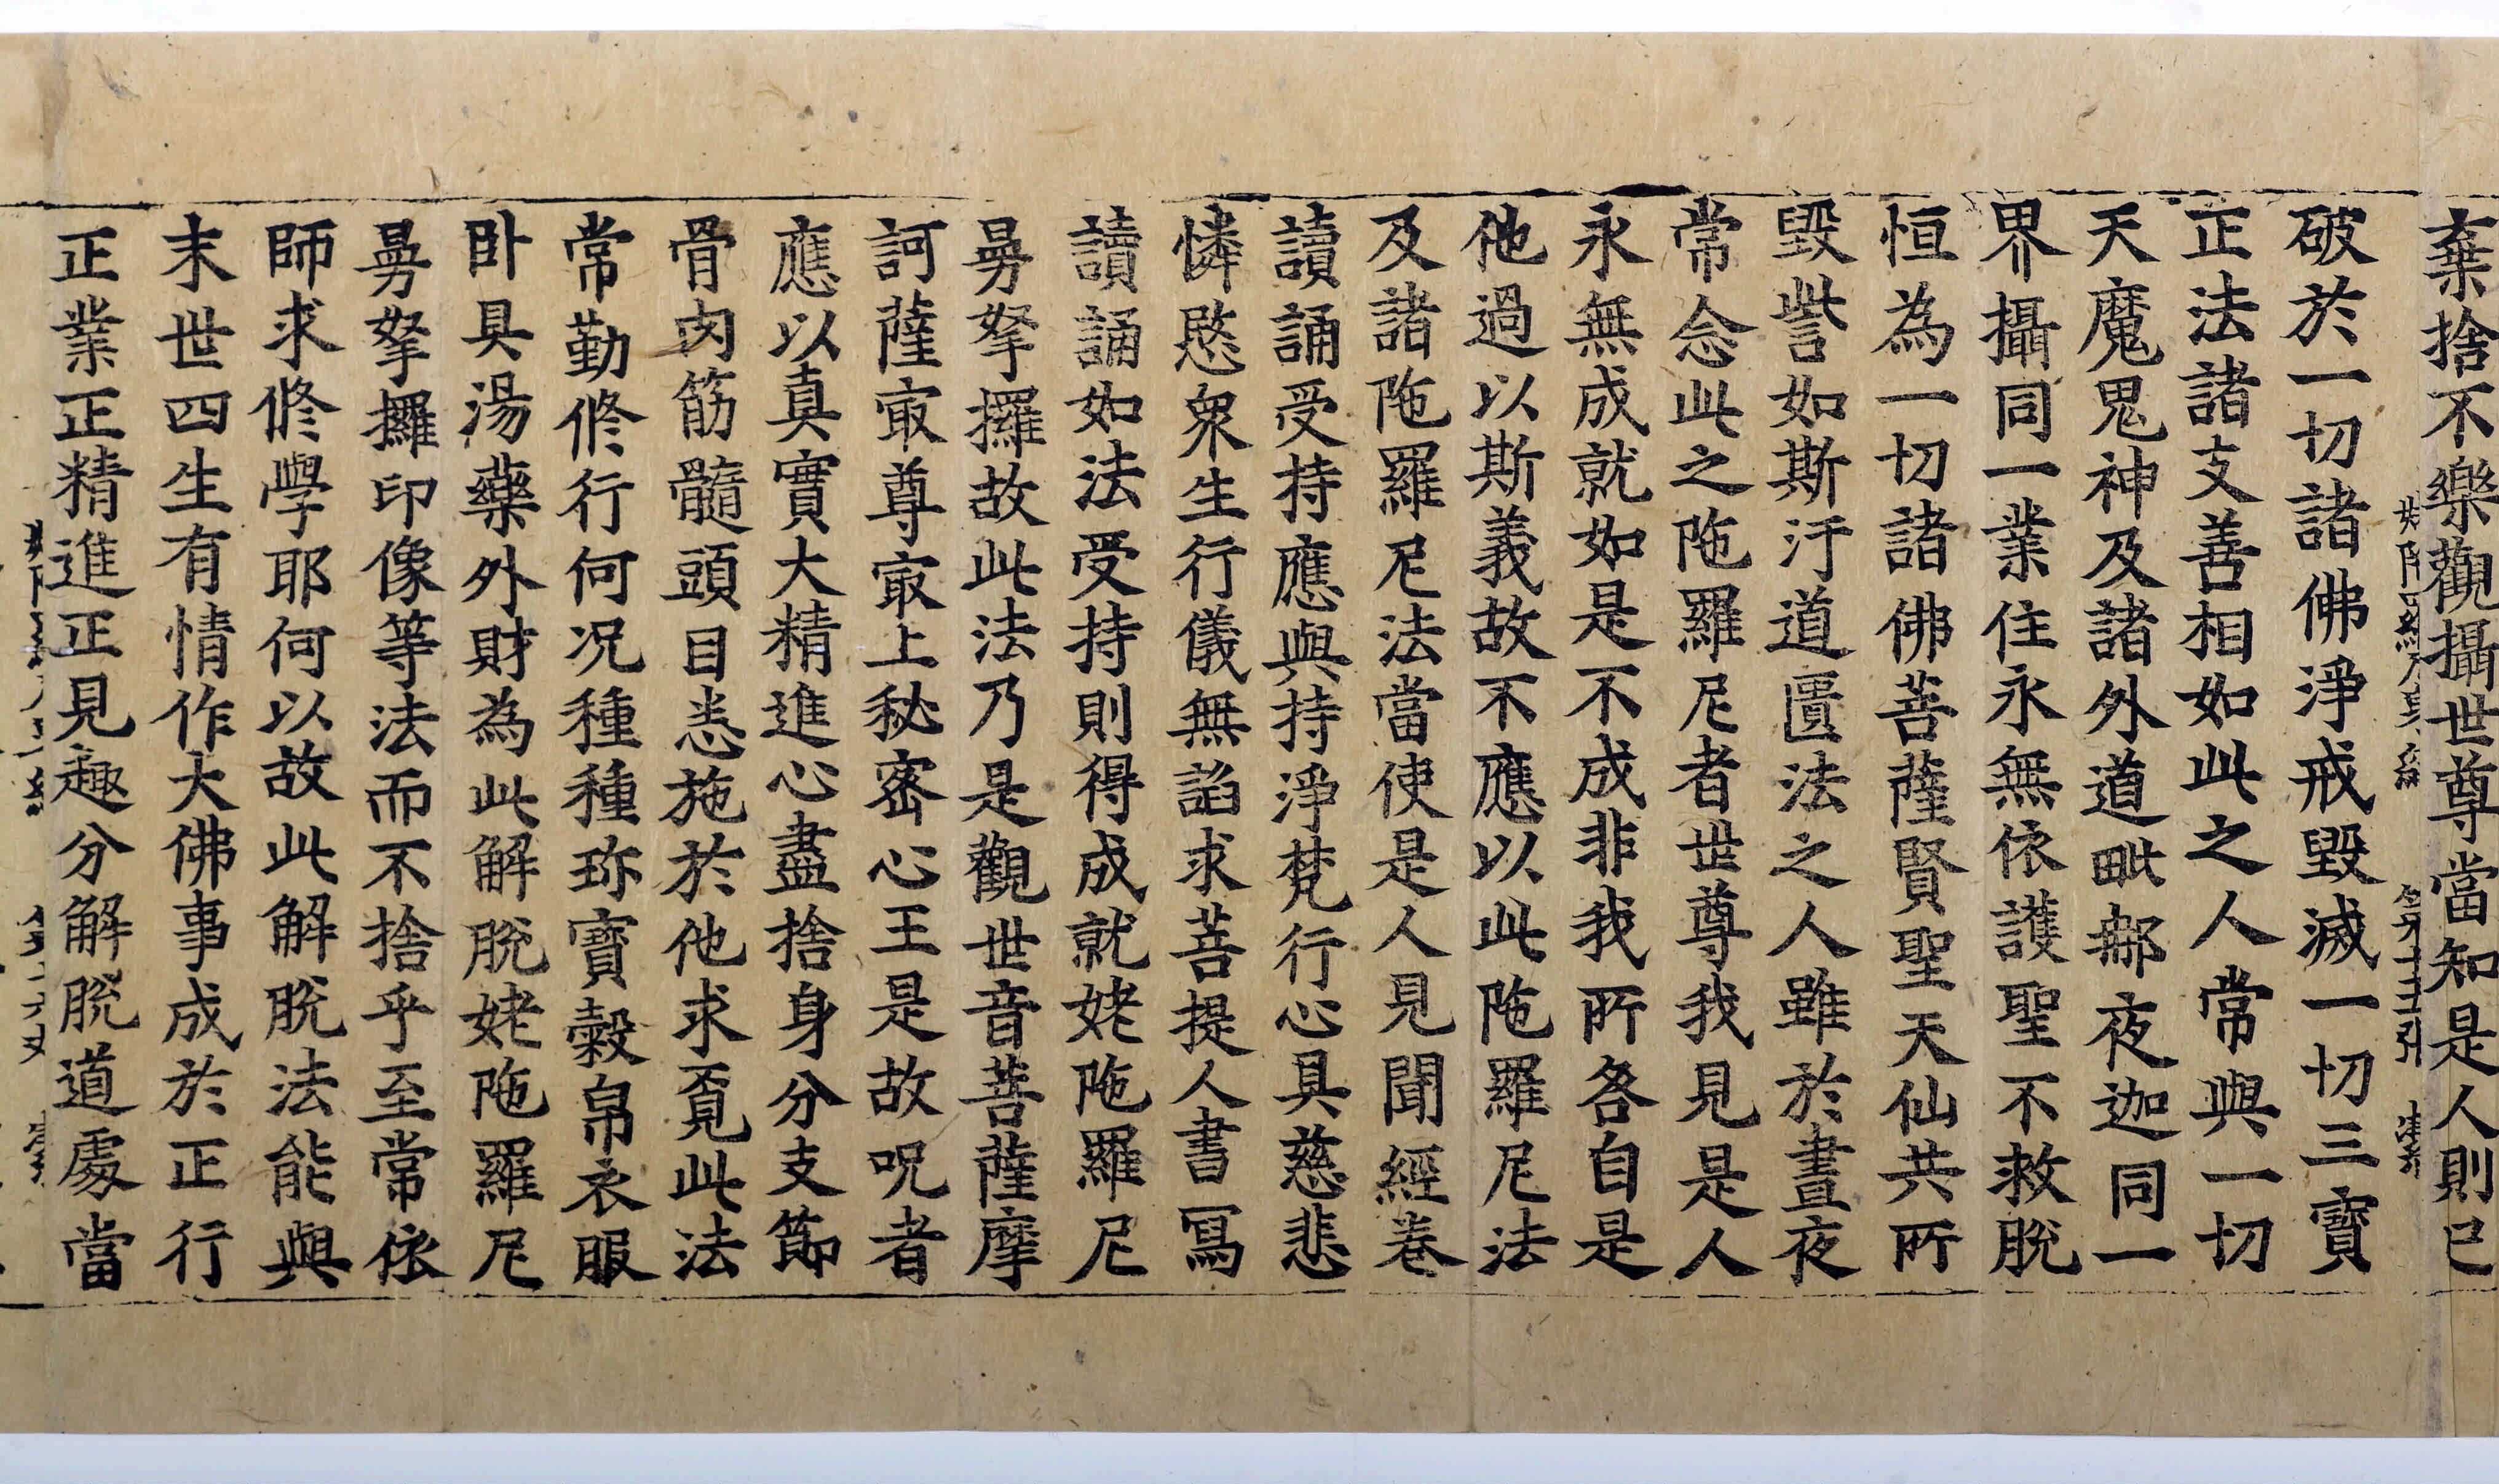 棄捨不樂觀攝世尊當知是人則已
破於一切諸佛淨戒毀滅一切三寶
正法諸支善相如此之人常與一切
天魔鬼神及諸外道毗那夜迦同一
界攝同一業住永無依護聖不救脫
恒為一切諸佛菩薩賢聖天仙共所
毀訾如斯汙道匱法之人雖於晝夜
常念此之陁羅尼者世尊我見是人
永無成就如是不成非我我所各自是
他過以斯義故不應以此陁羅尼法
及諸陁羅尼法當使是人見聞經卷
讀誦受持應與持淨梵行心具慈悲
憐愍衆生行儀無諂求菩提人書寫
讀誦如法受持則得成就姥陁羅尼
曼拏攞故此法乃是觀世音菩薩摩
訶薩㝡尊㝡上秘密心王是故呪者
應以真實大精進心盡捨身分支節
骨肉筋髓頭目悉施於他求覓此法
常勤修行何况種種珎寶穀帛衣服
卧具湯藥外財為此解脫姥陁羅尼
曼拏攞印像等法而不捨乎至常依
師求修學耶何以故此解脫法能與
末世四生有情作大佛事成於正行
正業正精進正見趣分解脫道處當